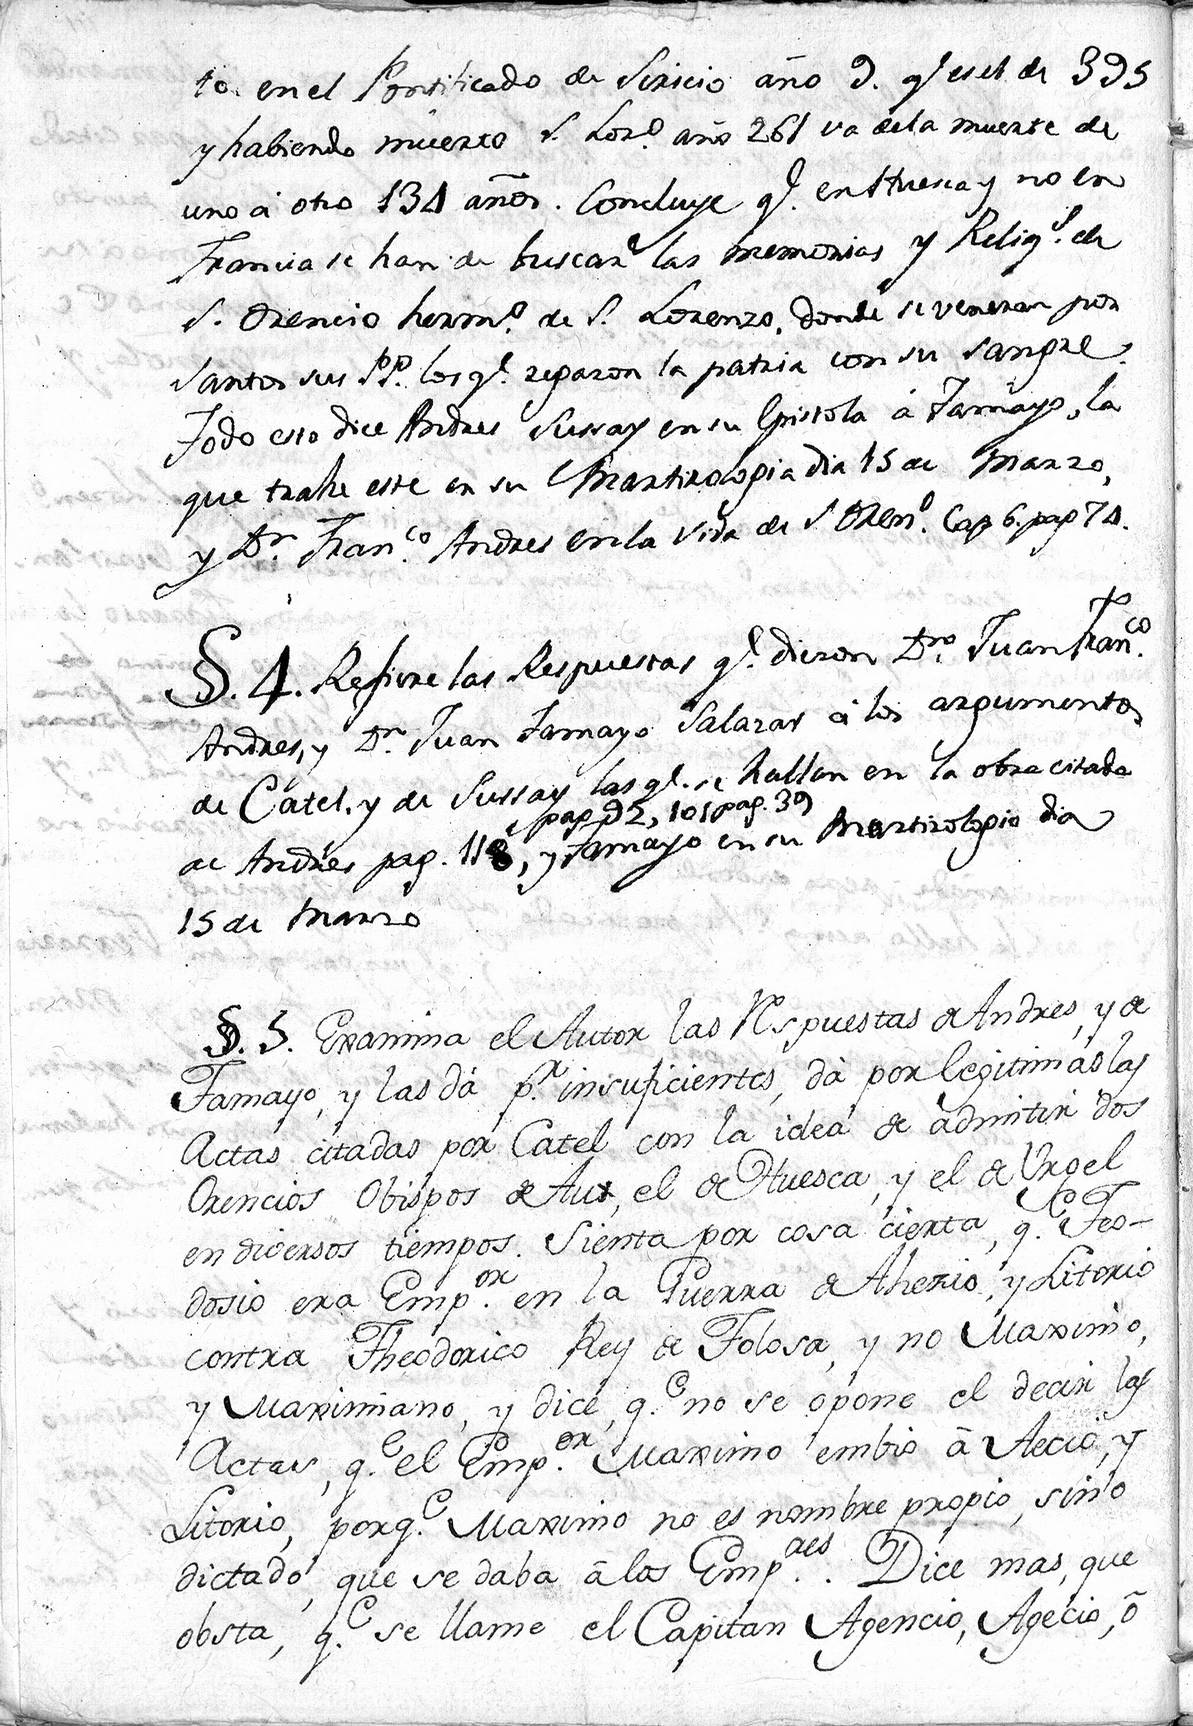 to. en el Pontificado de Siricio año 9. q.e es el de 395
y habiendo muerto S. Lor.o año 261 va de la muerte de
uno á otro 134 años. Concluye q.e en Huesca y no en
Francia se han de buscar las memorias y Reliq.s de
S. Orencio herm.o de S. Lorenzo, donde se veneran por
Santos sus P.P. los q.e regaron la patria con su sangre.
Todo esto dice Andres Sussay en su Epistola á Tamayo, la
que trahe este en su Martirologia dia 15 de Marzo,
y D.n Fran.co Andres en la vida de S. Oren.o Cap 6. pag 74.
§. 4. Refiere las Respuestas q.e dieron D.n Juan Fran.co
Andres, y D.n Juan Tamayo Salazar á los argumentos
de Catel. y de Sussay las q.e se hallan en la obra citada
pag 92, 101 pag. 39
de Andres pag. 118, y Tamayo en su Martirologio dia
15 de Marzo
§. 5. Examina el Autor las Respuestas de Andres, y de
Tamayo, y las dá p.r insuficientes, dá por legitimas las
Actas citadas por Catel con la idea de admitir dos
Orencios Obispos de Aux, el de Huesca, y el de Urgel
en diversos tiempos. Sienta por cosa cierta, q.e Teo-
dosio era Emp.or en la Guerra de Ahezio, y Litorio
contra Theodorico Rey de Tolosa, y no Maximo,
y Maximiano, y dice, q.e no se opone el decir las
Actas, q.e el Emp.or Maximo embió á Aecio, y
Litorio, porq.e Maximo no es nombre propio, sino
dictado, que se daba á los Emp.res. Dice mas, que
obsta, q.e se llame el Capitan Agencio, Agecio, ó